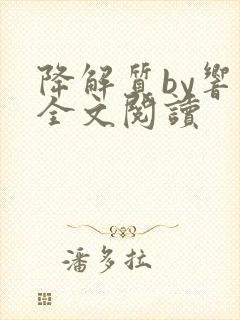 降解质by響
全文閱讀
潘多拉